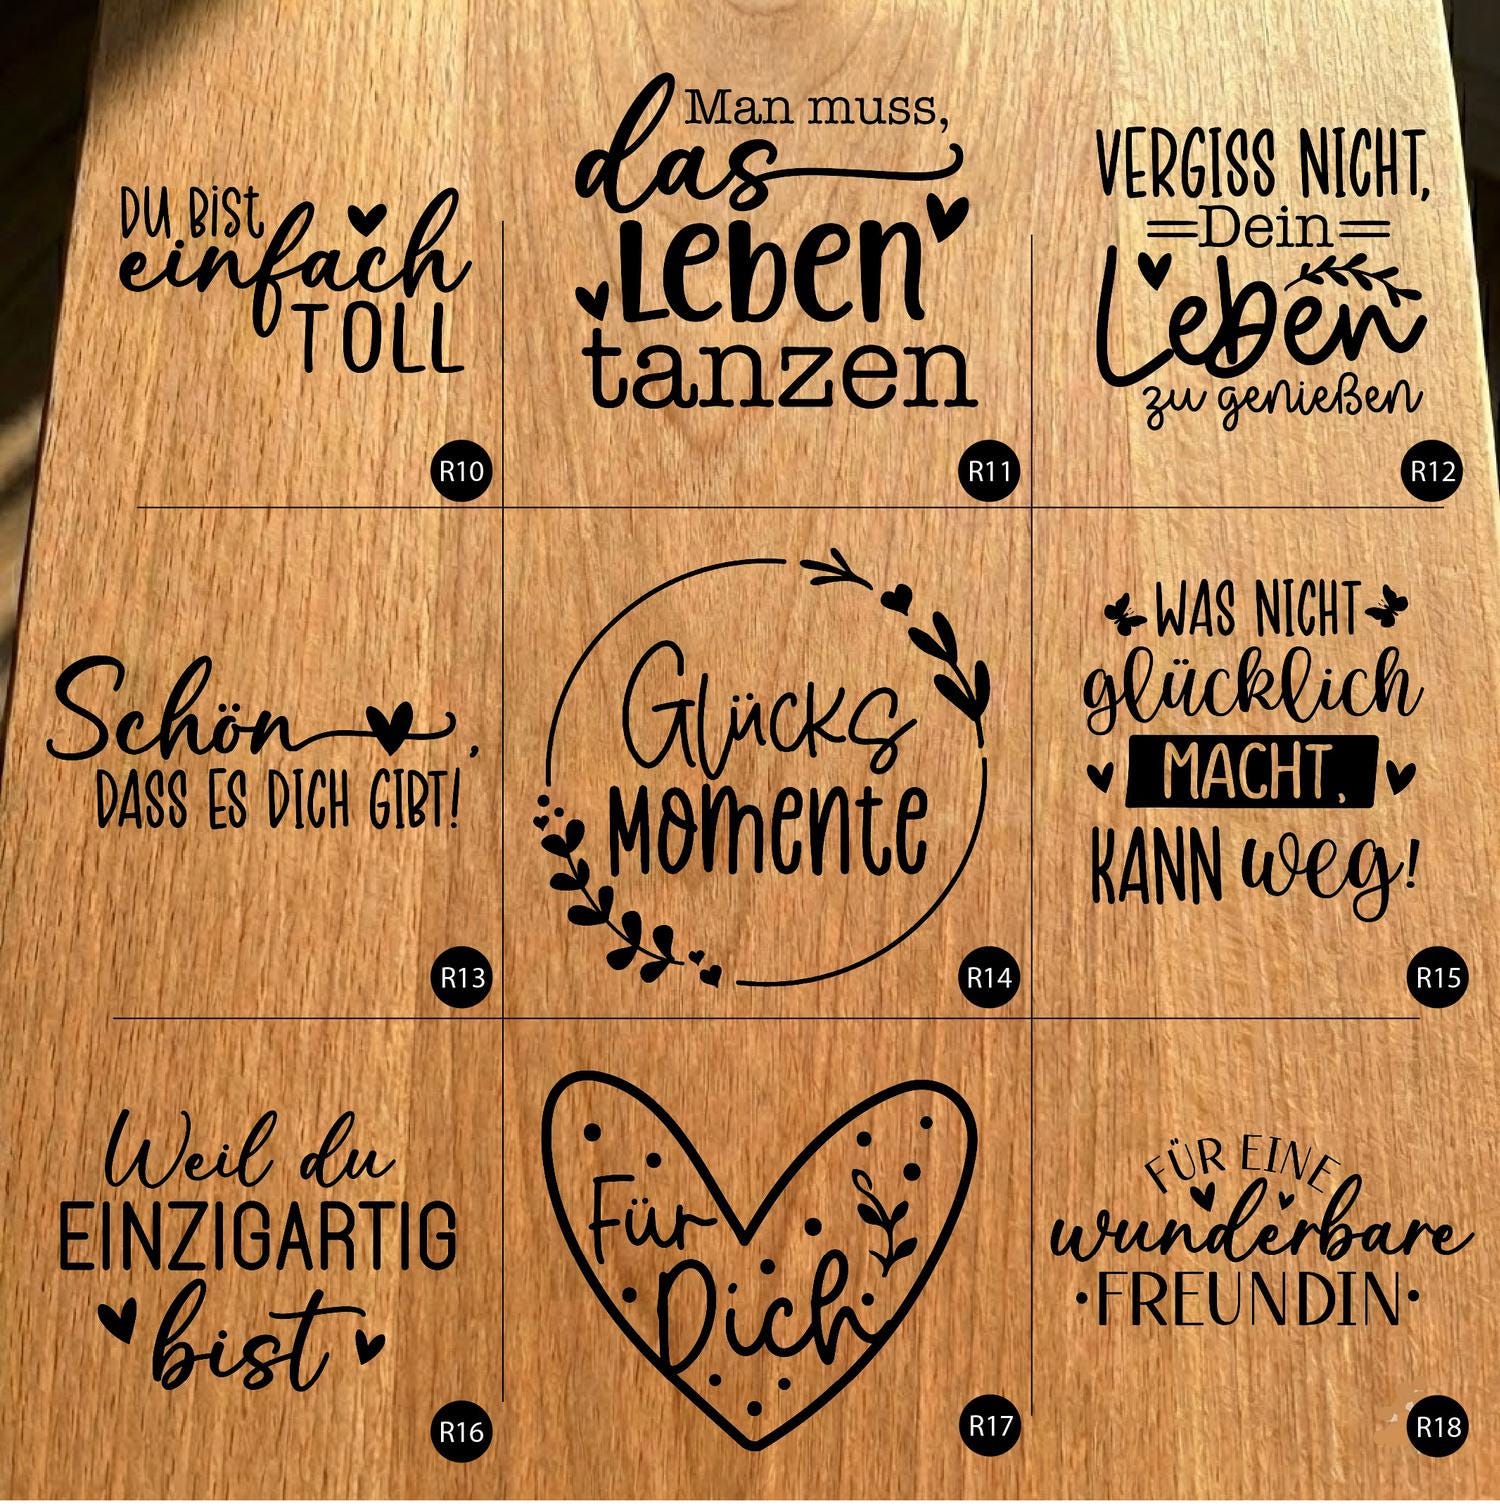 DU BIST
einfach
TOLL
R10
Man muss,
das
LEBEN
tanzen
R11
VERGISS NICHT,
=Dein=
Leben
zu genießen
R12
Schön,
DASS ES DICH GIBT!
R13
Glücks
Momente
R14
WAS NICHT
glücklich
MACHT,
KANN weg!
R15
Weil du
EINZIGARTIG
bist
R16
Für
Dich
R17
FÜR EINE
wunderbare
•FREUNDIN•
R18